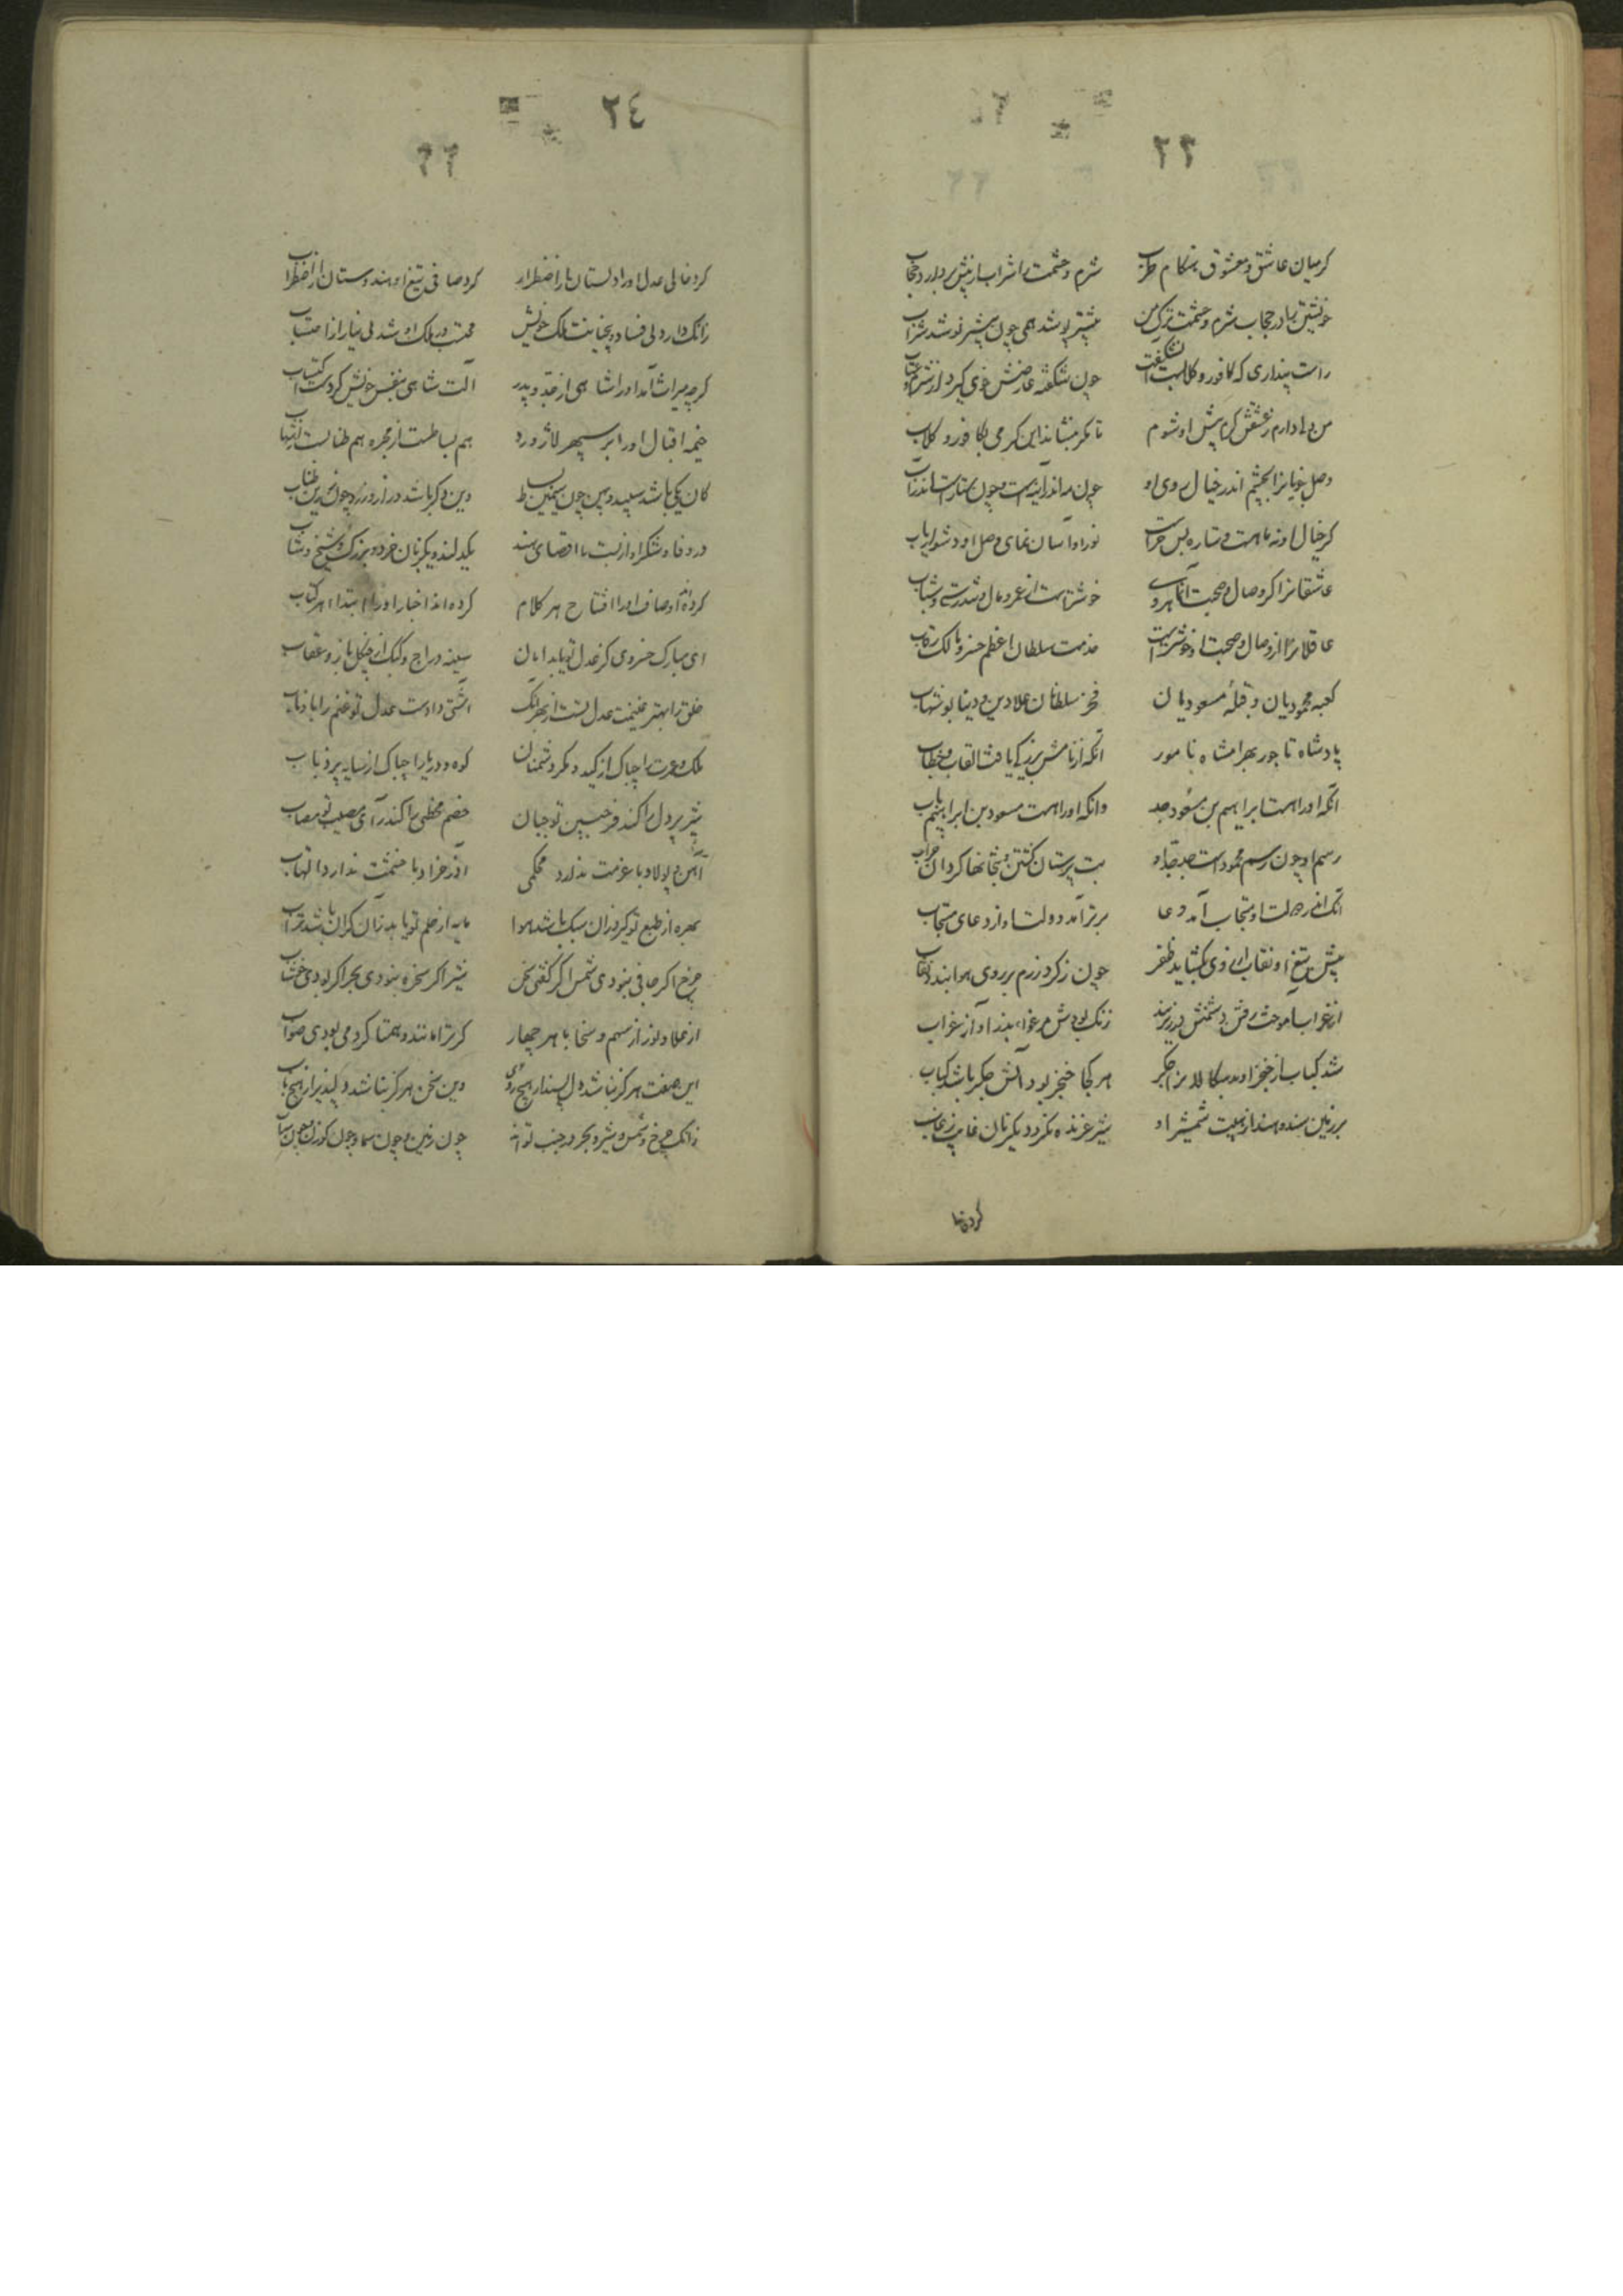 ۲۳
کر میان عاشق و معشوق هنکام طرب شرم و حشمت را شراب از پیش بردارد حجاب
خویشتن را در حجاب شرم و حشمت ترک من بیشتر پوشد همی چون بیشتر نوشد شراب
راست پنداری که کافور و کلابست شکفت چون شکفته عارضش خوی کیرد از شرم و عتاب
من دلی دارم ز عشقش کرم پیش او شوم تا مکر بنشاند این کرمی بکافور و کلاب
وصل خوبانرا بچشم اندر خیال روی او چون مه اندر آینه است و چون ستارست اندر آب
کر خیال او نه ماهست و ستاره پس چراست نور او آسان نمای و وصل او دشوار یاب
عاشقانرا کر وصال و صحبت آن ماهروی خوشتر است از عمر و مال و تندرستی و شباب
عاقلانرا از وصال و صحبت او خوشتریست خدمت سلطان اعظم خسرو مالک رقاب
کعبه محمودیان و قبلهٔ مسعودیان فخر سلطانان علاء دین و دنیا بو شهاب
پادشاه تاجور بهرامشاه نامور آنکه از نامش بزرکی یافت القاب و خطاب
آنکه او را هست ابراهیم بن مسعود جد وانکه او را هست مسعود بن ابراهیم باب
رسم او چون رسم محمودست جد جد او بت پرستان کشتن و بتخانها کردن خراب
آنک از رحلت او مستجاب آمد دعا برتر آمد دولت او از دعای مستجاب
پیش تیغ او نقاب از روی بکشاید ظفر چون ز کرد رزم بر روی هوا بندد نقاب
از غراب آموخت رفتن دشمنش در زیر بند زنک بودش مرغوا، بند آواز غراب
شد کباب از خنجر او بد سکالانرا جکر هر کجا خنجر بود آتش جکر باشد کباب
بر زمین سند و هند از هیبت شمشیر او شیر غرنده نکردد یکزمان غایب ز غاب
کرد خالی
۲٤
کرد خالی عدل او را دلستان با را ضطرار کرد صافی تیغ او هندوستان از اضطراب
زانک دارد بی فساد و بی خیانت ملک خویش محتسب در ملک او شد بی نیاز از احتساب
کرچه میراث آمد او را شاهی از جد و پدر آلت شاهی بنفس خویش کردست اکتساب
خیمه اقبال او را بر سپهر لاژورد هم بساطست از مجره هم طنابست از شهاب
کان یکی باشد سپید و پهن چون سیمین بساط وین دکر باشد دراز و زرد چون زرین طناب
در وفا و شکر او از بست تا اقصای هند یکدلند و یکزبان خرد و بزرک و شیخ و شاب
کرده‌اند اوصاف او را افتتاح هر کلام کرده‌اند اخبار او را ابتداء هر کتاب
ای مبارک خسروی کز عدل تو یابد امان سینه دراج و کبک از چنکل باز و عقاب
خلق را بهتر غنیمت عدل تست از بهر آنک آشتی دادست عدل تو غنم را با ذئاب
ملک و عمرت را چه باک از کید و مکر دشمنان کوه و دریا را چه باک از سایه پر ذباب
شیر پر دل را کند فر جبین تو جبان خصم مخطی را کند رای مصیب تو مصاب
آهن و پولاد با عزمت ندارد محکمی آذر خراد با خشمت ندارد التهاب
بهره از طبع تو کیرد زان سبک باشد هوا مایه از حلم تو یابد زان کران باشد تراب
چرخ اکر صافی نبودی شمس اکر کفتی سخن شیر اکر سخره نبودی بحر اکر بودی خوشاب
از علا و نور از سهم و سخا با هر چهار کر ترا مانند و همتا کردمی بودی صواب
این صفت هرکز نباشد دل پسند از هیچ روی وین سخن هرکز نباشد دلپذیر از هیچ باب
زانک چرخ و شمس و شیر و بحر در جنب تواند چون زمین و چون سها و چون کوزن و چون سراب